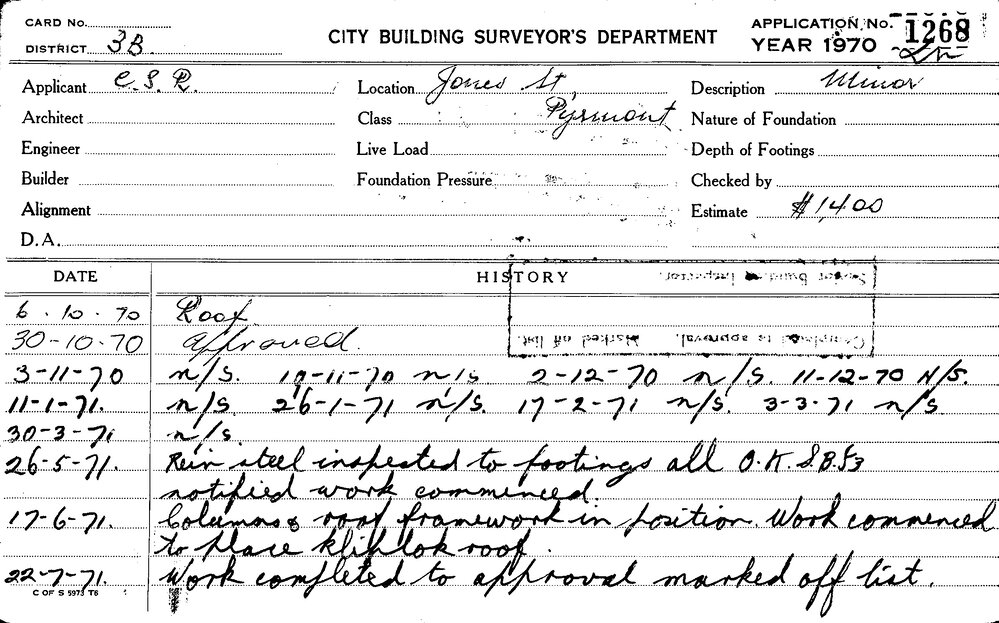 CARD No.
DISTRICT 3B
CITY BUILDING SURVEYOR'S DEPARTMENT
APPLICATION No. 1268
YEAR 1970
Applicant C.S.R.
Location Jones St,
Description Minor
Architect
Class Pyrmont
Nature of Foundation
Engineer
Live Load
Depth of Footings
Builder
Foundation Pressure
Checked by
Alignment
Estimate $1,400
D.A.
DATE HISTORY
Senior Building Inspector.
6.10.70 Roof
30-10-70 approved.
Completed to approval. Marked off list.
3-11-70 n/s. 10-11-70 n/s 2-12-70 n/s. 11-12-70 N/S.
11-1-71. n/s. 26-1-71 n/s. 17-2-71 n/s. 3-3-71 n/s.
30-3-71 n/s.
26-5-71. Rein steel inspected to footings all O.K. S.B.I3
notified work commenced.
17-6-71. Columns & roof framework in position. Work commenced
to place kliplok roof.
22-7-71. Work completed to approval marked off list.
C OF S 5973 T6